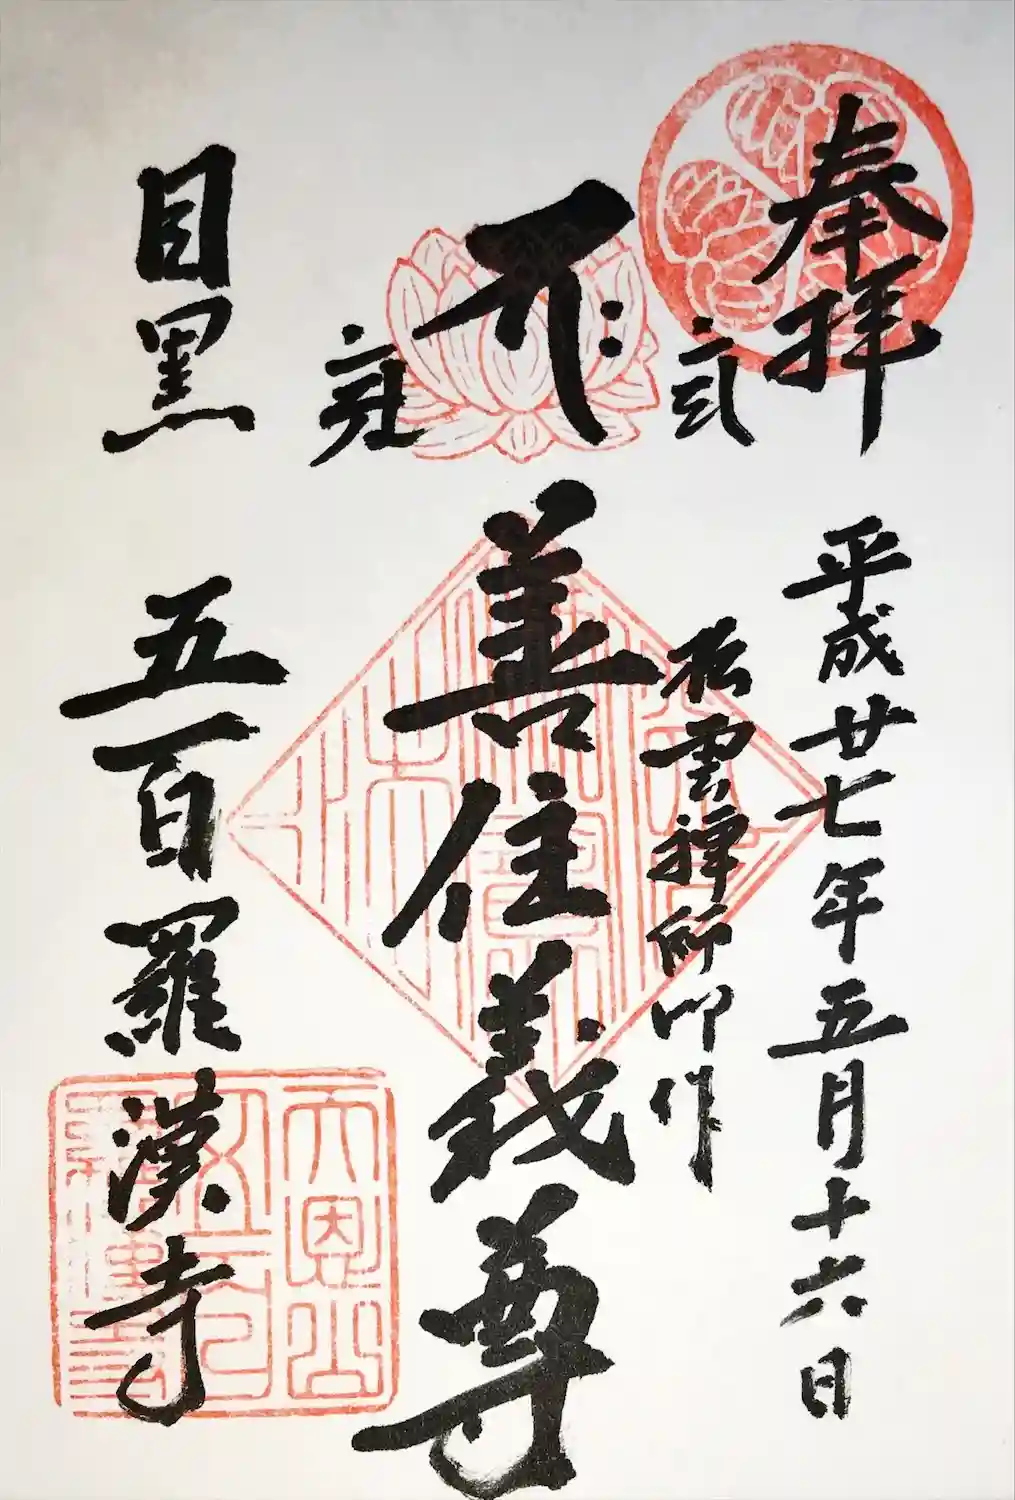 奉拝
平成廿七年五月十六日
松雲禅師作
善住義尊
目黒
五百羅漢寺
天恩山
五百
羅漢寺